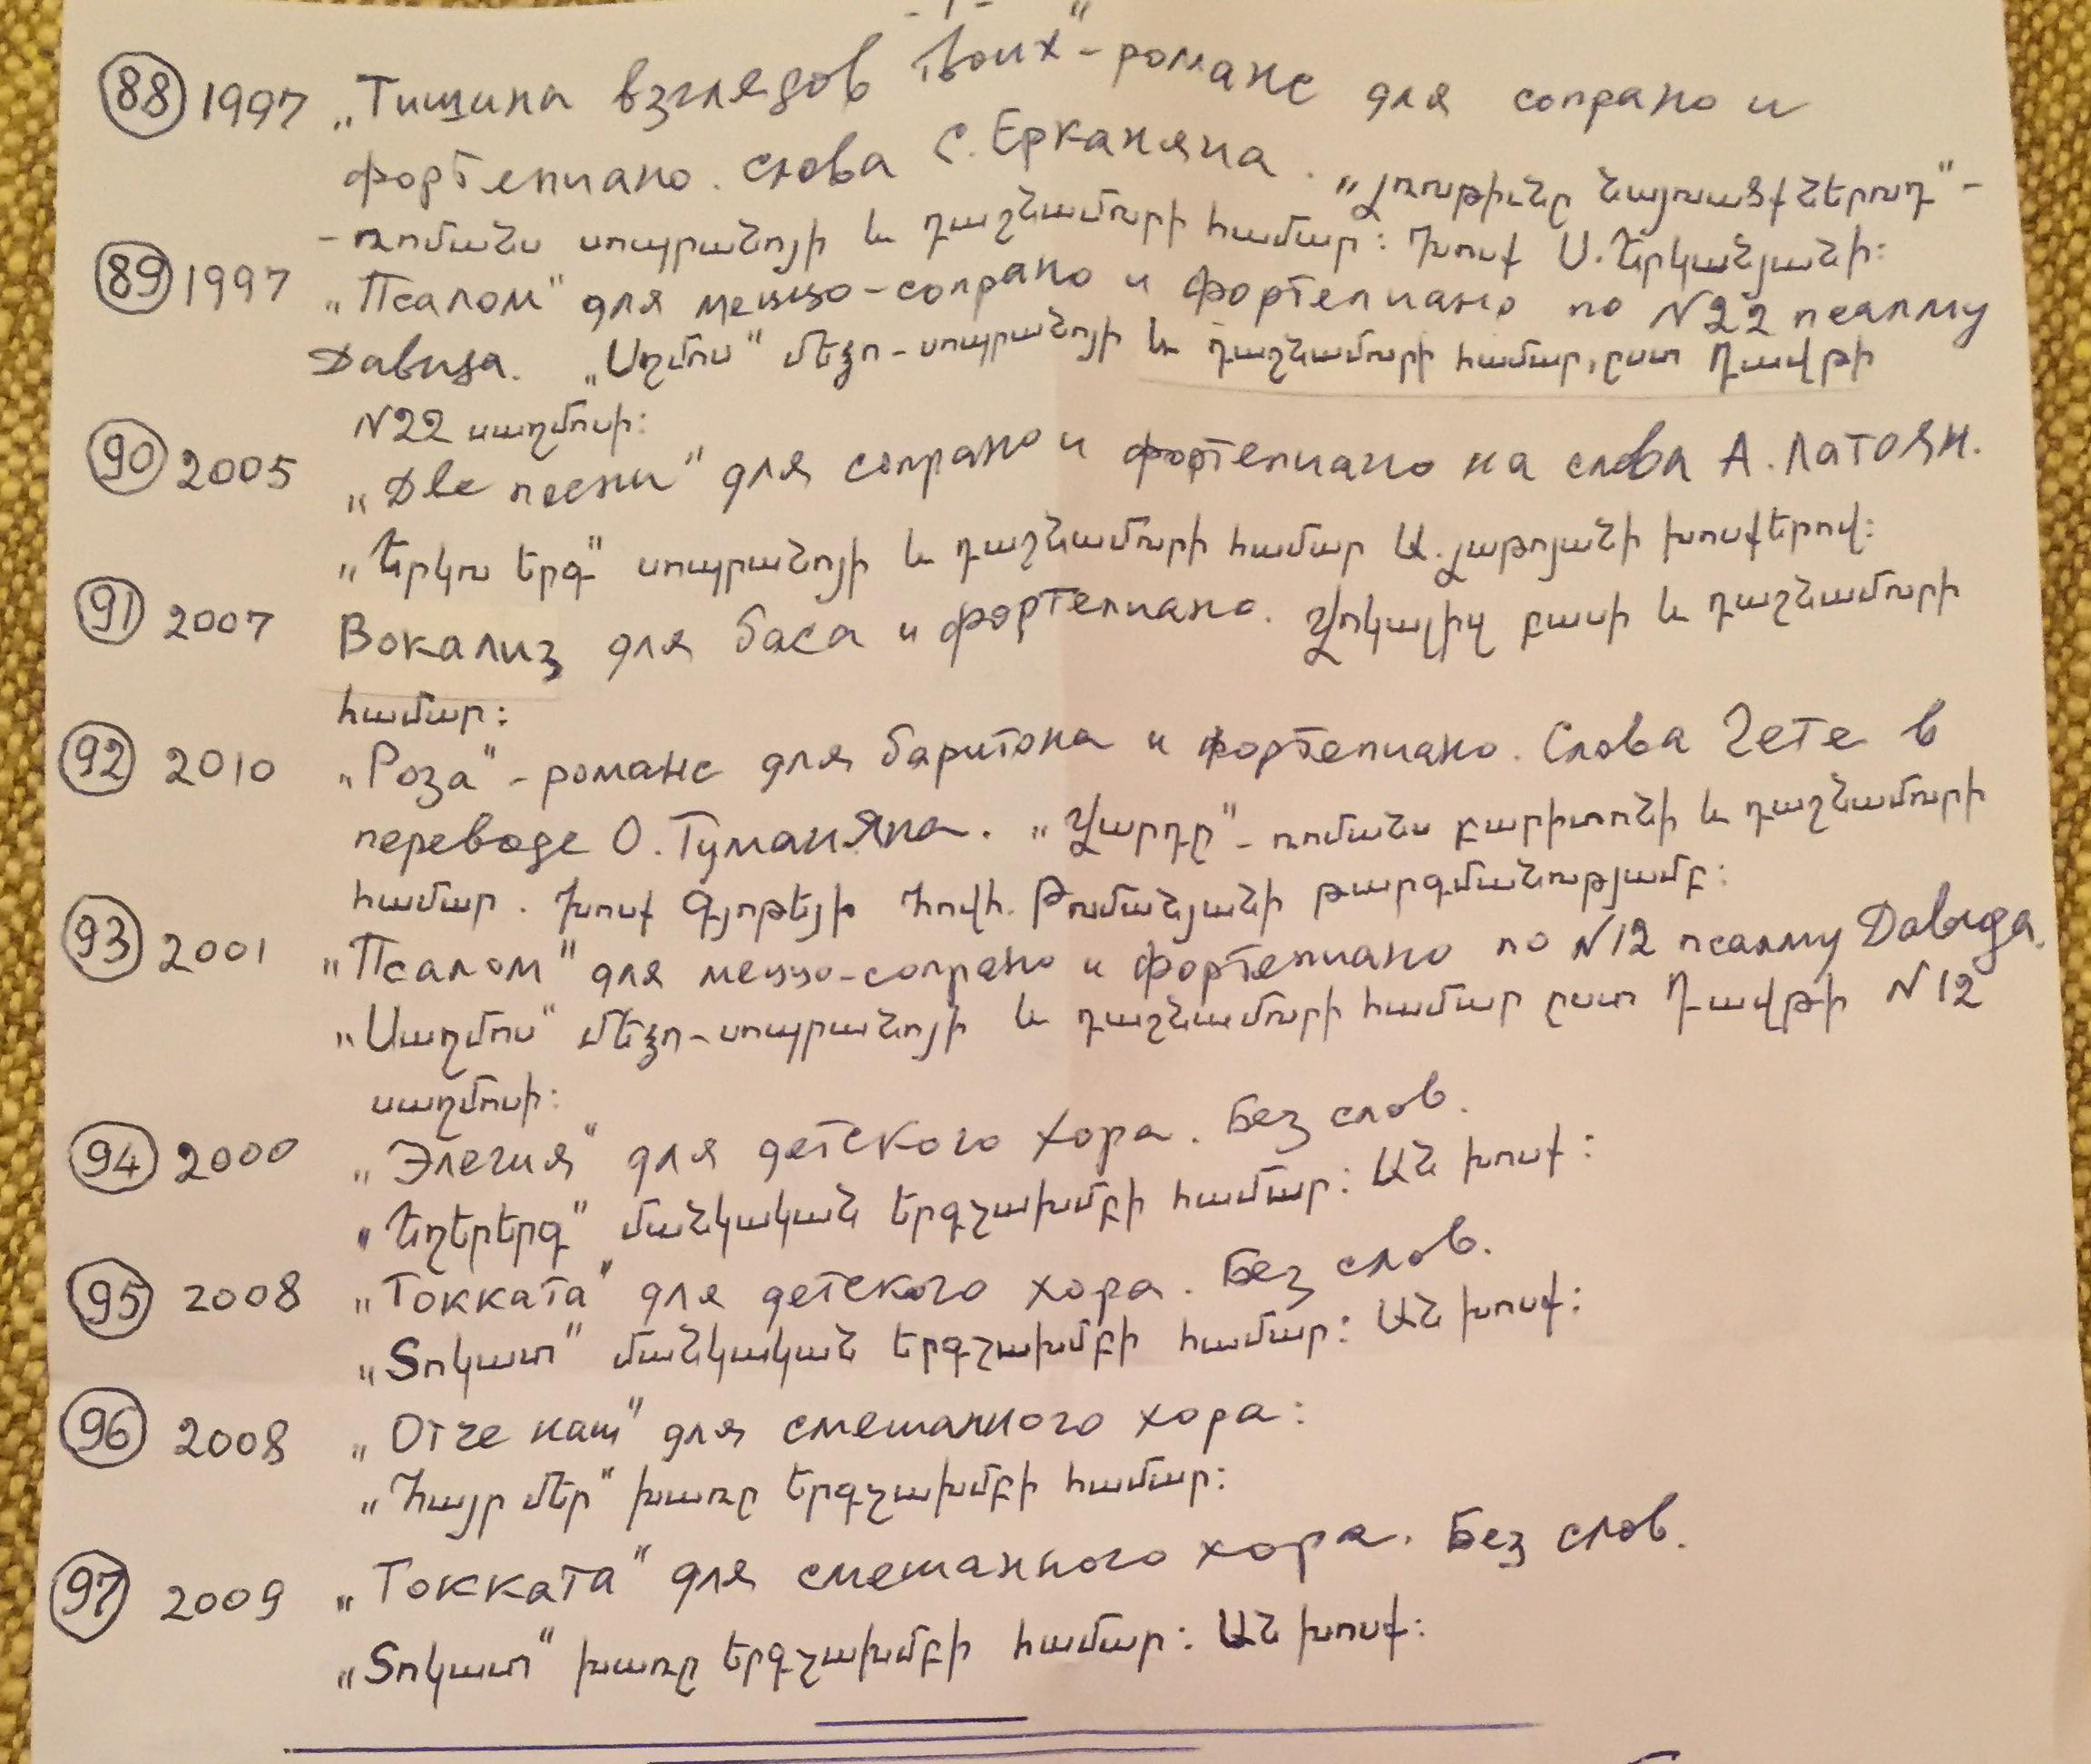 - 7 -
88 1997 „Тишина взглядов твоих" - романс для сопрано и
фортепиано. слова С. Ерканяна. „Լռութիւնը նայուածքներուդ" -
- ռոմանս սոպրանոյի և դաշնամուրի համար: Խոսք Ս. Երկանյանի:
89 1997 „Псалом" для меццо-сопрано и фортепиано по N22 псалму
Давида. „Սղմոս" մեցո-սոպրանոյի և դաշնամուրի համար, ըստ Դավթի
N22 սաղմոսի:
90 2005 „Две песни" для сопрано и фортепиано на слова А. Латоян.
„Երկու երգ" սոպրանոյի և դաշնամուրի համար Ա. Լաթոյանի խոսքերով:
91 2007 Вокализ для баса и фортепиано. Վոկալիզ բասի և դաշնամուրի
համար:
92 2010 „Роза" - романс для баритона и фортепиано. Слова Гете в
переводе О. Туманяна. „Վարդը" - ռոմանս բարիտոնի և դաշնամուրի
համար. Խոսք Գյոթեյի Հովհ. Թումանյանի թարգմանությամբ:
93 2001 „Псалом" для меццо-сопрано и фортепиано по N12 псалму Давида.
„Սաղմոս" մեցո-սոպրանոյի և դաշնամուրի համար ըստ Դավթի N12
սաղմոսի:
94 2000 „Элегия" для детского хора. Без слов.
„Եղերերգ" մանկական երգչախմբի համար: Ան խոսք:
95 2008 „Токката" для детского хора. Без слов.
„Տոկատ" մանկական երգչախմբի համար: Ան խոսք:
96 2008 „Отче наш" для смешанного хора:
„Հայր մեր" խառը երգչախմբի համար:
97 2009 „Токката" для смешанного хора. Без слов.
„Տոկատ" խառը երգչախմբի համար: Ան խոսք: